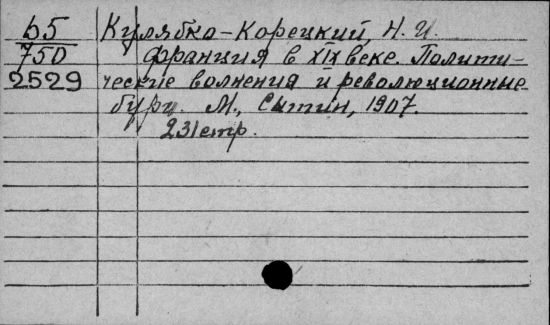 Б5 Кулябко-Корецкий, Н. И.
750 Франция в XIX веке. Полити-
2529 ческие волнения и революционные
бури. М., Сытин, 1907.
231 стр.